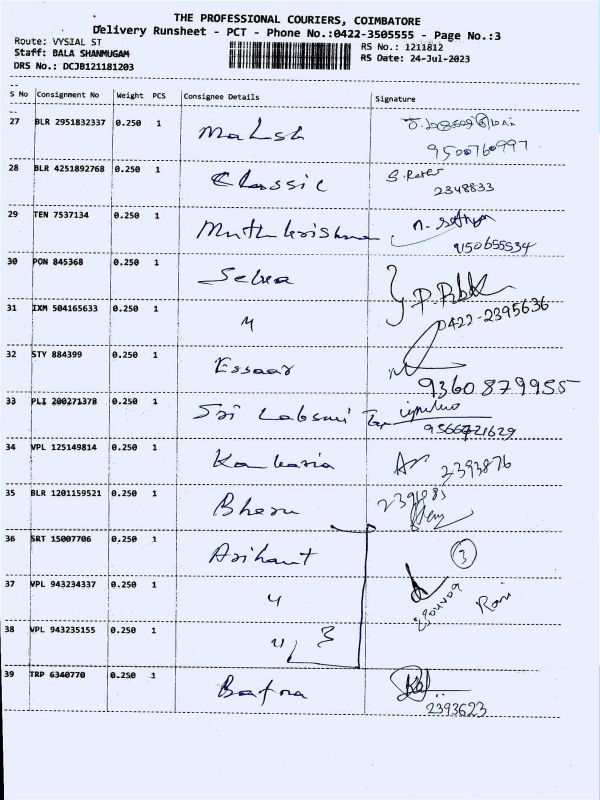 THE PROFESSIONAL COURIERS, COIMBATORE
Delivery Runsheet - PCT - Phone No.:0422-3505555 - Page No.:3
Route: VYSIAL ST
RS No.: 1211812
Staff: BALA SHANMUGAM
RS Date: 24-Jul-2023
DRS No.: DCJB121181203
S No Consignment No Weight PCS Consignee Details Signature
27 BLR 2951832337 0.250 1 Mahesh
9500760997
28 BLR 4251892768 0.250 1 Classic
2348833
29 TEN 7537134 0.250 1 Muthukrishna
9150655534
30 PON 845368 0.250 1
31 IXM 504165633 0.250 1 〃 0422-2395636
32 STY 884399 0.250 1 Essaar
9360879955
33 PLI 200271378 0.250 1 Sri
34 VPL 125149814 0.250 1 2393876
35 BLR 1201159521 0.250 1
36 SRT 15007706 0.250 1 Arihant 3
37 VPL 943234337 0.250 1 〃 Ravi
38 VPL 943235155 0.250 1 〃 3
39 TRP 6340770 0.250 1 Bafna
2393623